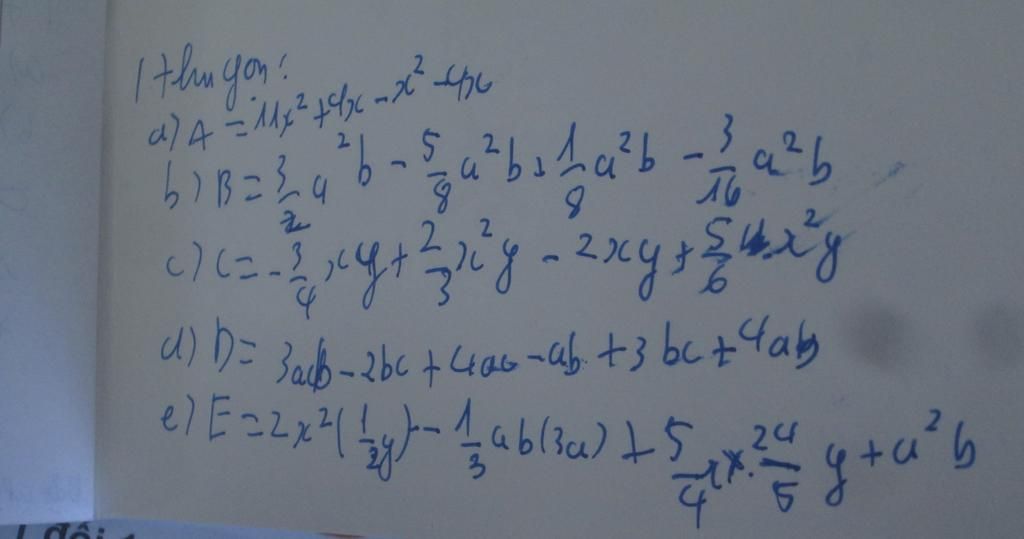 1 thu gọn:
a) A = 11x² + 4x - x² - 4x
b) B = 3/2 a²b - 5/8 a²b + 1/8 a²b - 3/16 a²b
c) C = -3/4 xy + 2/3 x²y - 2xy + 5/6 x²y
d) D = - 2bc + 4ac - ab + 3bc + 4ab
e) E = 2x²(1/2y) - 1/3 ab(3a) + 5/4 y + a²b